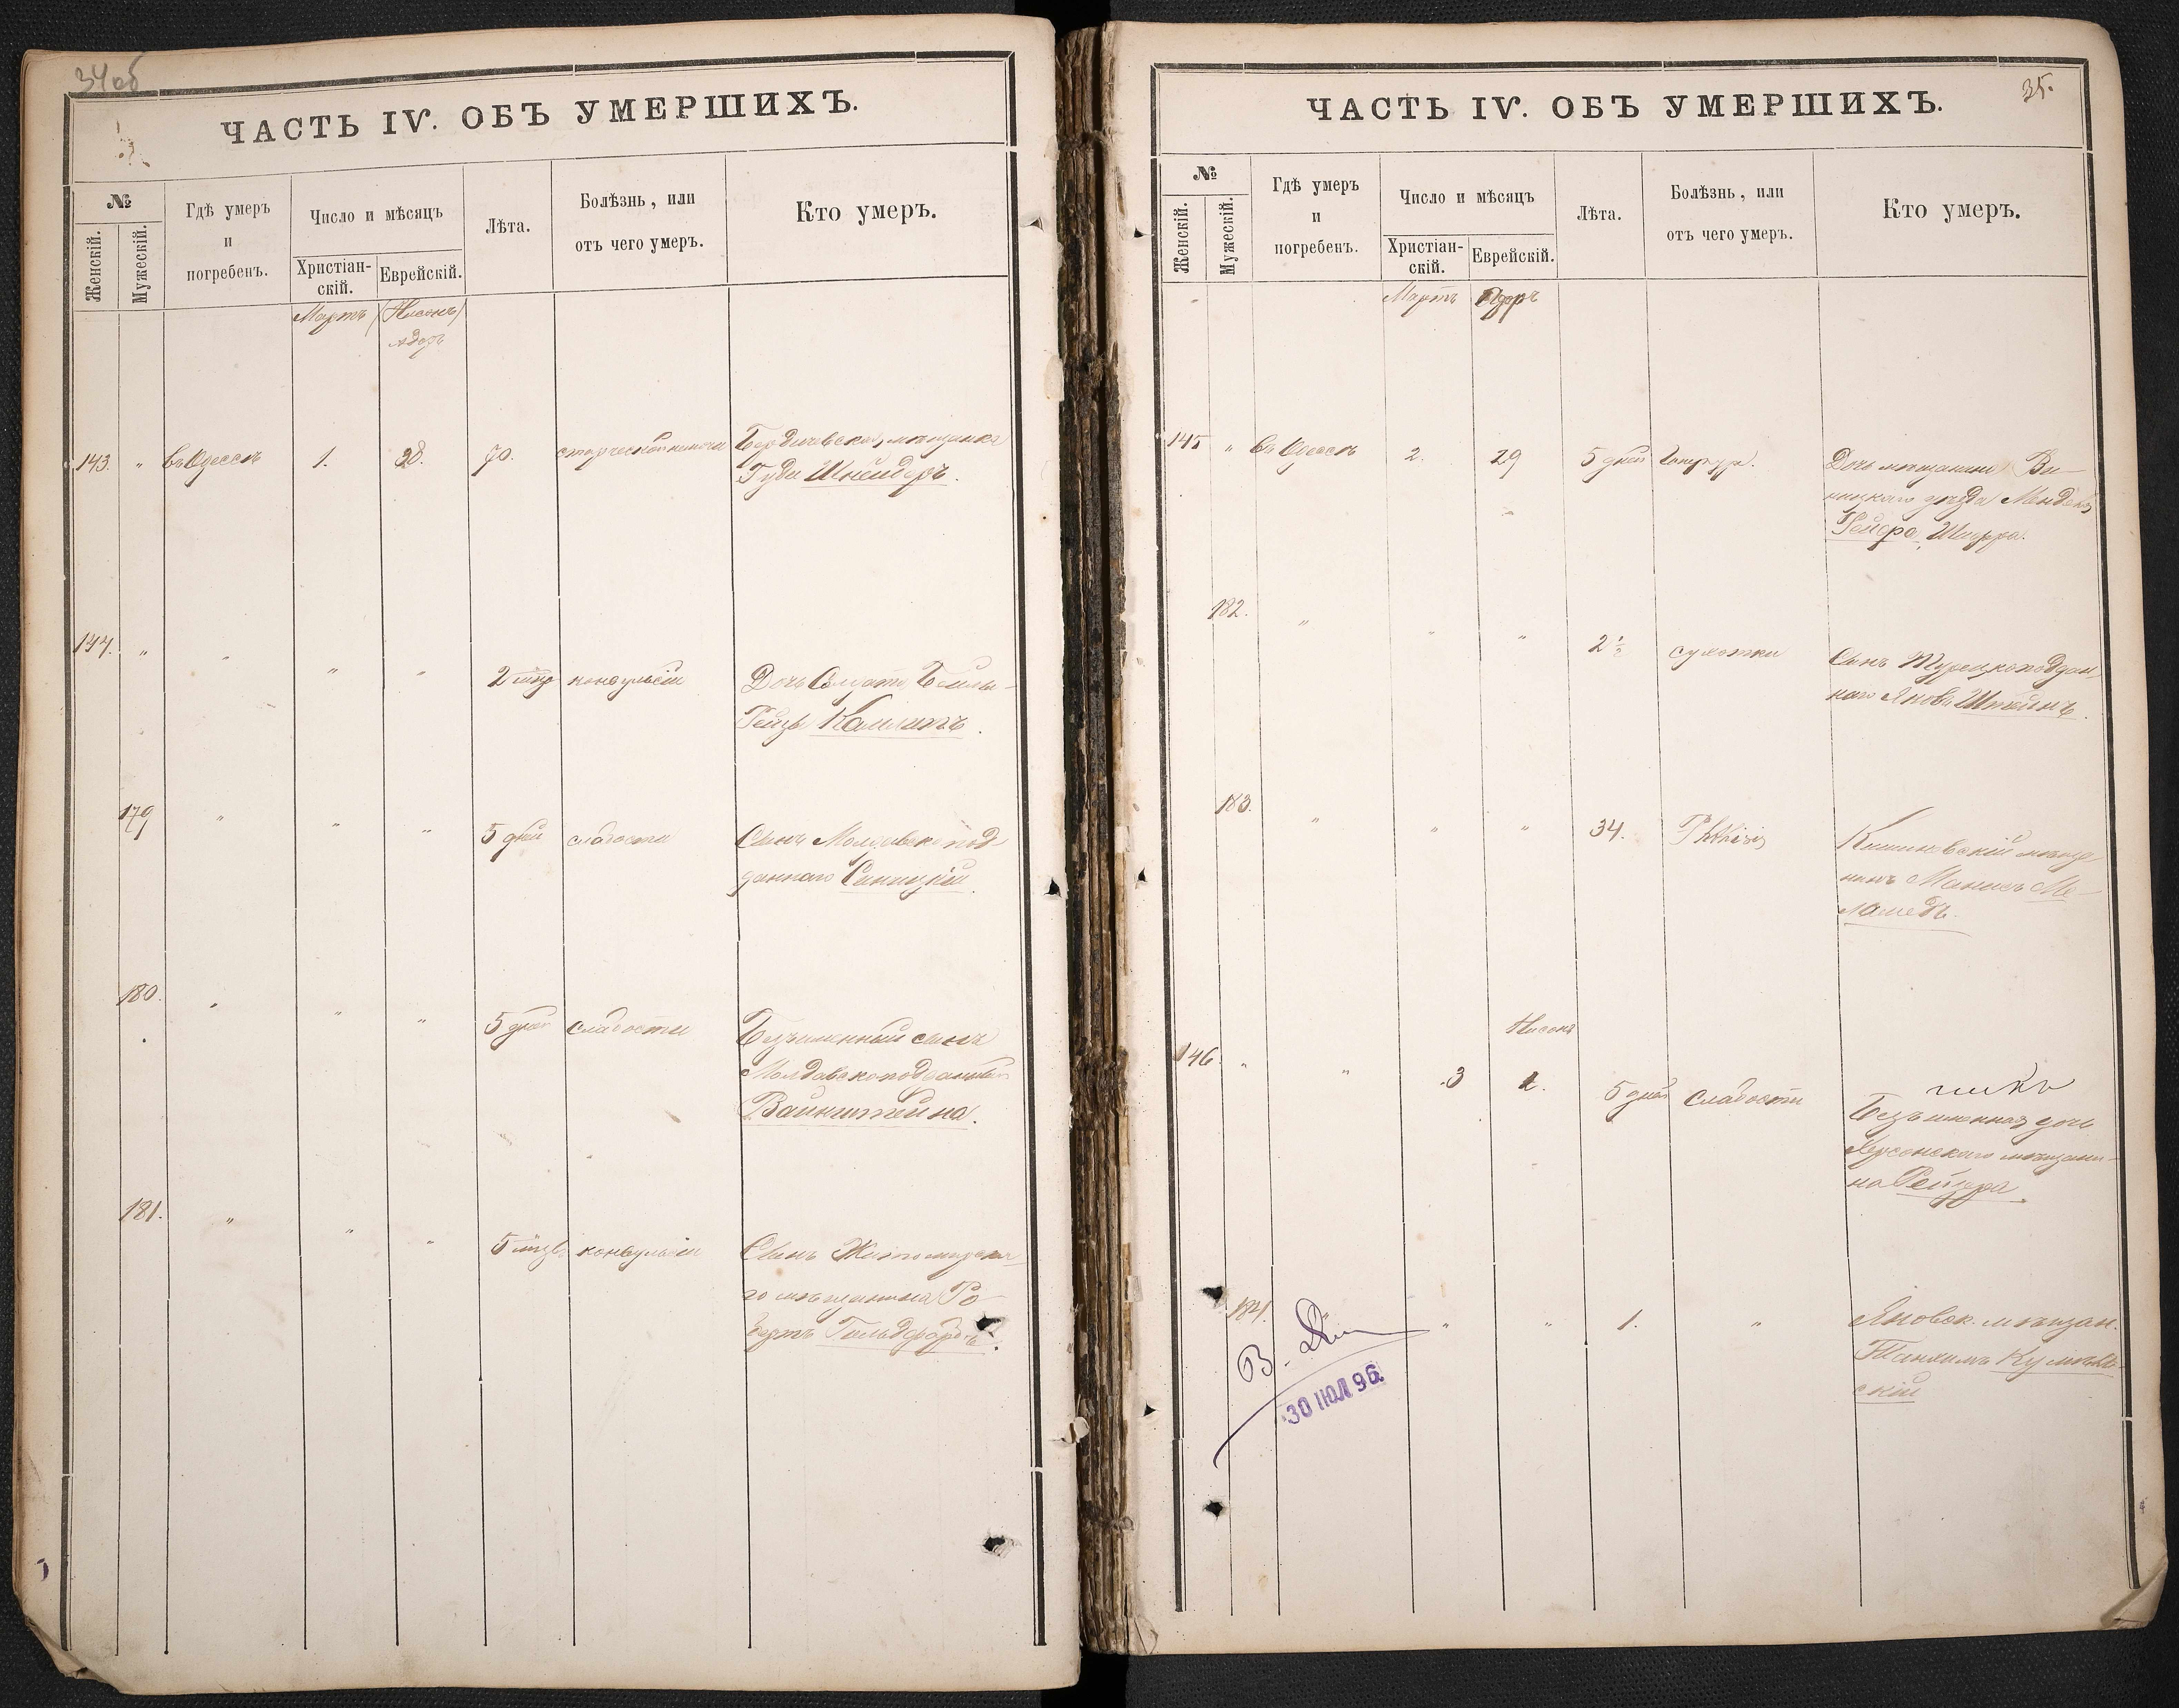 34об
ЧАСТЬ IV. ОБЪ УМЕРШИХЪ.
№
Женскій.
Мужескій.
Гдѣ умеръ
и
погребенъ.
Число и мѣсяцъ
Христіан-
скій.
Еврейскій.
Лѣта.
Болѣзнь, или
отъ чего умеръ.
Кто умеръ.
Мартъ (Нисонъ)
Адаръ
143. " въ Одессѣ 1. 28. 70. старческой немочи Бердичевская мѣщанка
Гудя Шнейдеръ.
144. " " " " 2 конвульсіи Дочь Солдата Бейла-
Рейзя
179 " " " 5 дней слабости Сынъ Молдавскопод
даннаго Синицкій.
180. " " " 5 дней слабости Безъименный сынъ
Молдавскоподданнаго
Вайнштейна.
181. " " " 5 конвульсіи Сынъ Житомирска-
го мѣщанина Ро-
бертъ Гольдфарбъ.
35.
ЧАСТЬ IV. ОБЪ УМЕРШИХЪ.
№
Женскій.
Мужескій.
Гдѣ умеръ
и
погребенъ.
Число и мѣсяцъ
Христіан-
скій.
Еврейскій.
Лѣта.
Болѣзнь, или
отъ чего умеръ.
Кто умеръ.
Мартъ Адаръ
145 " въ Одессѣ 2. 29 5 дней Дочь мѣщанина Ви-
ницкаго уѣзда Мендель
Шифра.
182. " " " 2 ½ сухотки Сынъ Турецкоподдан
наго Яковъ Штейнъ.
183. " " " 34. Phthisis Кишиневскій мѣща
нинъ Манисъ Ме-
ламедъ.
Нисонъ
146. " " 3 1. 5 дней слабости
Безъименная дочь
Херсонскаго мѣщани-
на
184. " " 1. " Яновск. мѣщан.
скій
В.
30 ІЮЛ 96